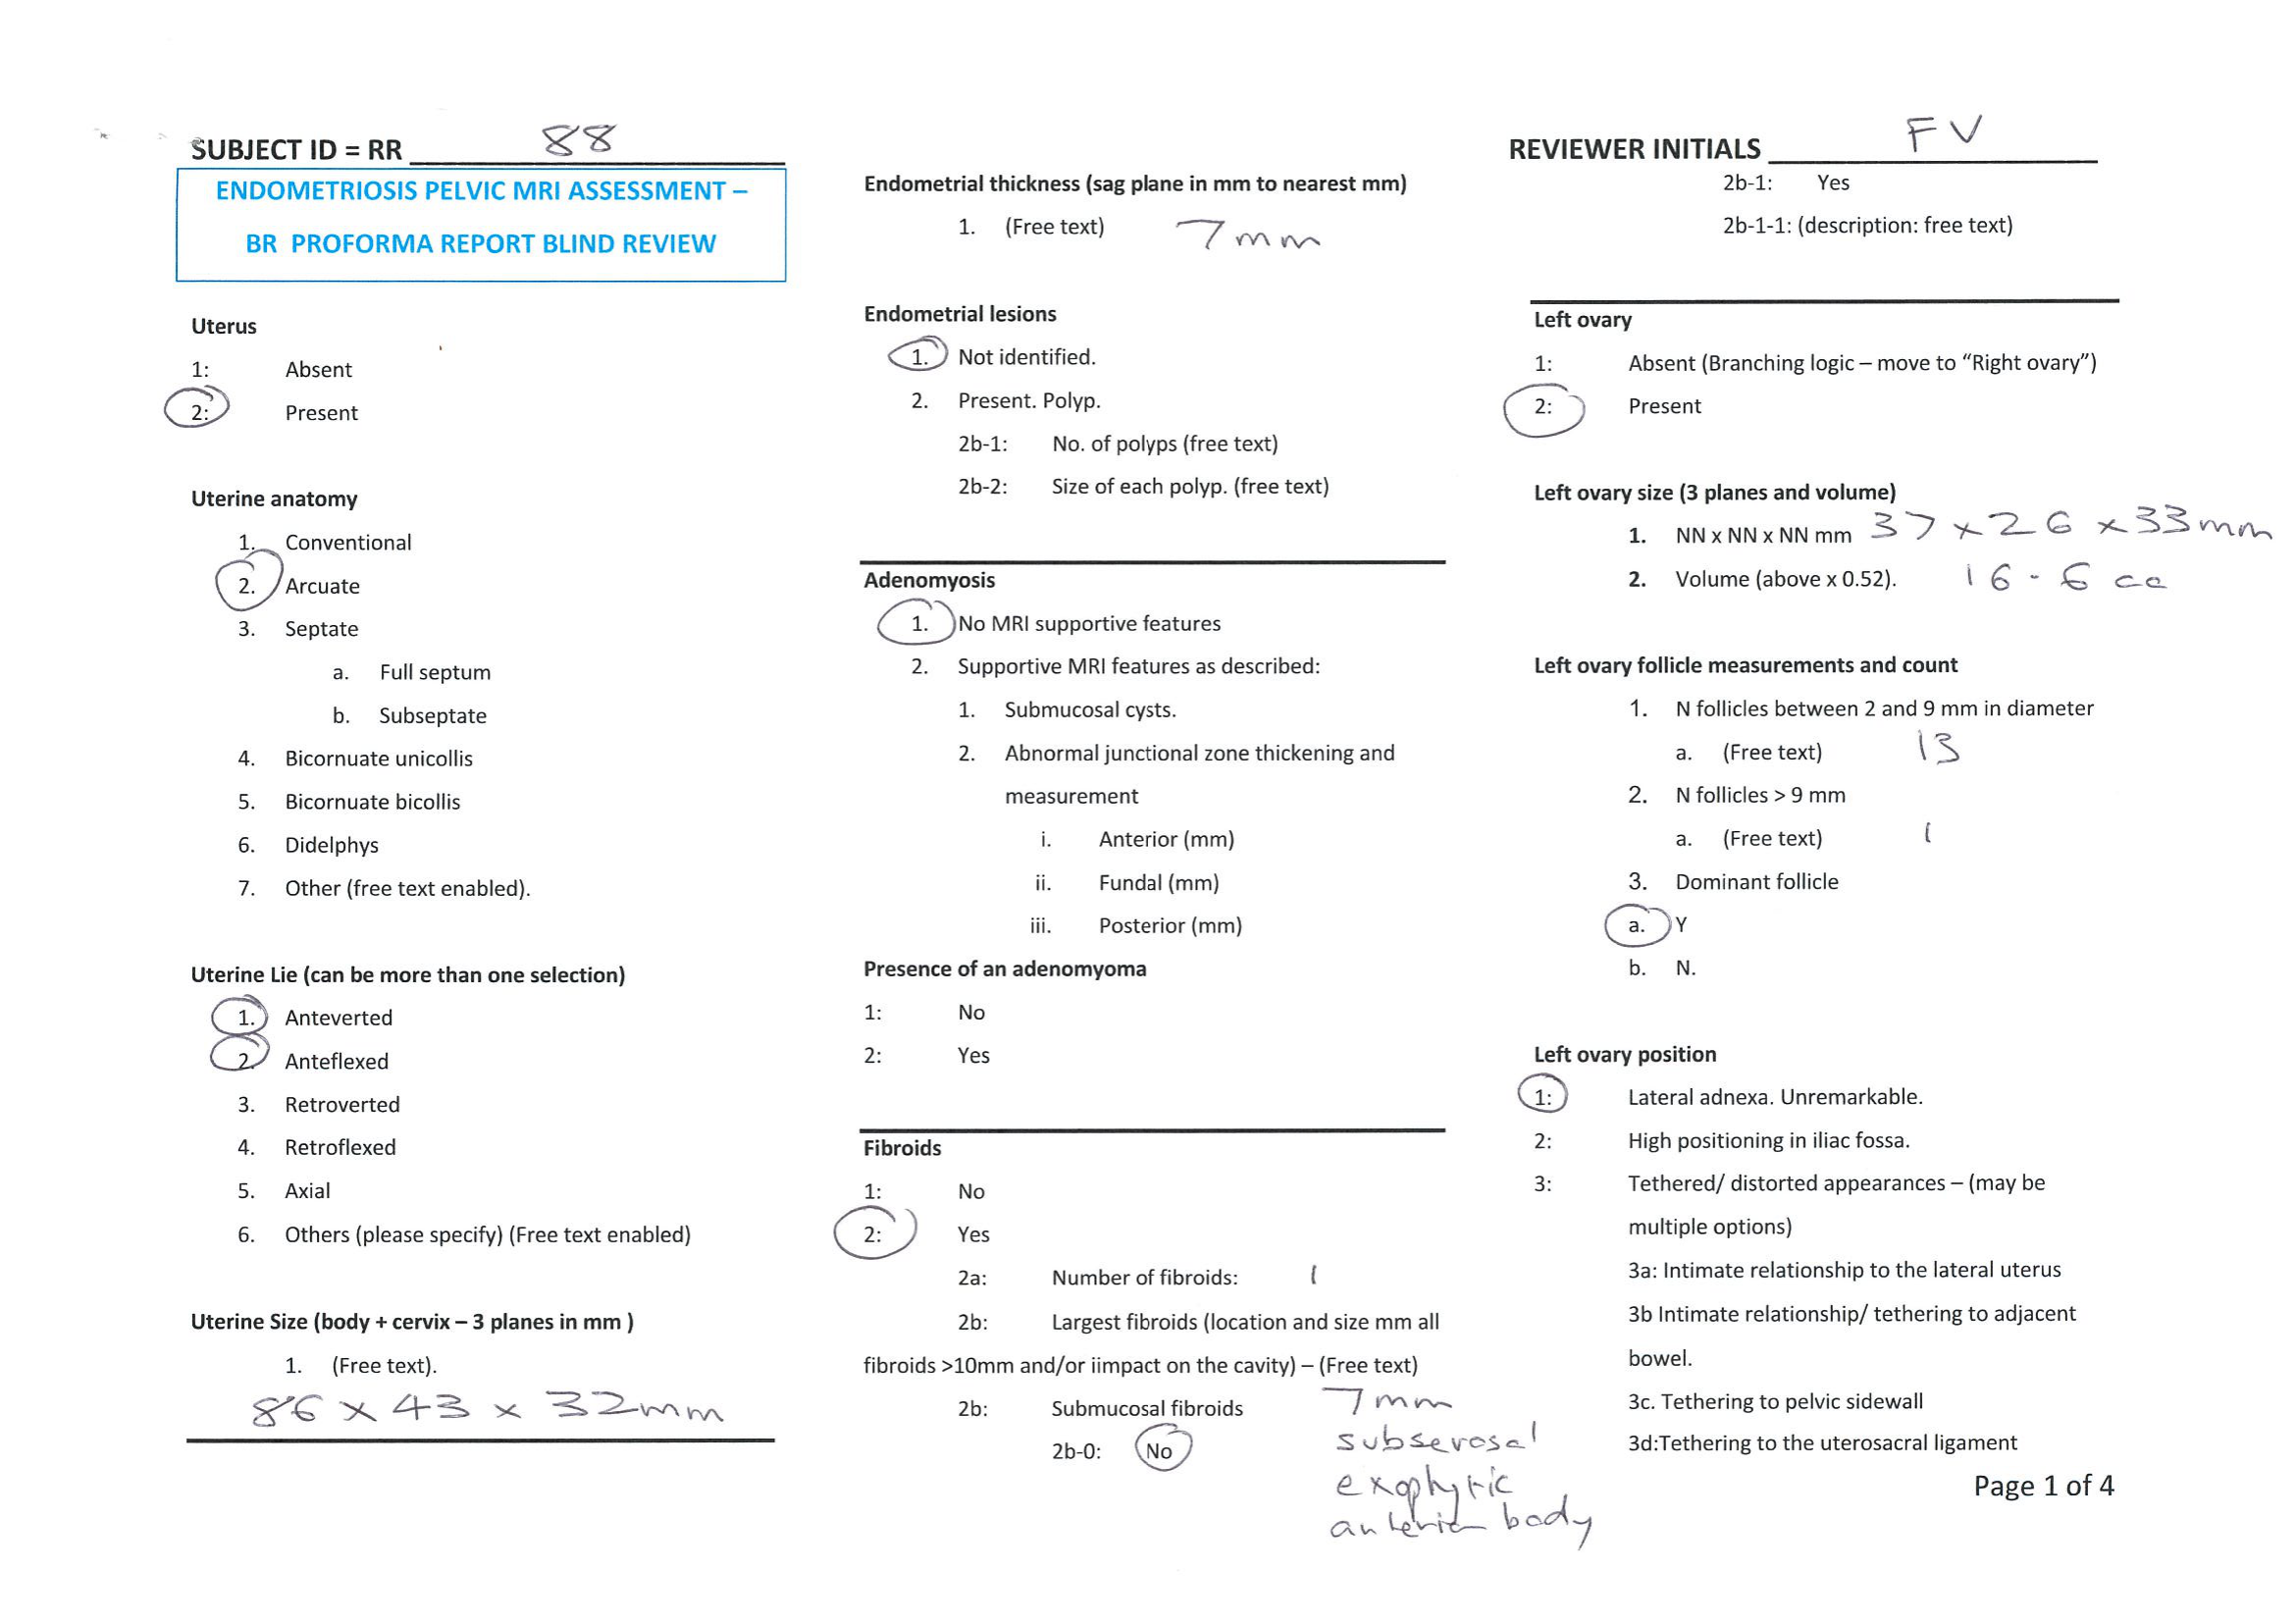 SUBJECT ID = RR 88
ENDOMETRIOSIS PELVIC MRI ASSESSMENT –
BR PROFORMA REPORT BLIND REVIEW
Uterus
1: Absent
2: Present
Uterine anatomy
1. Conventional
2. Arcuate
3. Septate
a. Full septum
b. Subseptate
4. Bicornuate unicollis
5. Bicornuate bicollis
6. Didelphys
7. Other (free text enabled).
Uterine Lie (can be more than one selection)
1. Anteverted
2. Anteflexed
3. Retroverted
4. Retroflexed
5. Axial
6. Others (please specify) (Free text enabled)
Uterine Size (body + cervix – 3 planes in mm )
1. (Free text).
86 x 43 x 32mm
Endometrial thickness (sag plane in mm to nearest mm)
1. (Free text) 7mm
Endometrial lesions
1. Not identified.
2. Present. Polyp.
2b-1: No. of polyps (free text)
2b-2: Size of each polyp. (free text)
Adenomyosis
1. No MRI supportive features
2. Supportive MRI features as described:
1. Submucosal cysts.
2. Abnormal junctional zone thickening and
measurement
i. Anterior (mm)
ii. Fundal (mm)
iii. Posterior (mm)
Presence of an adenomyoma
1: No
2: Yes
Fibroids
1: No
2: Yes
2a: Number of fibroids: 1
2b: Largest fibroids (location and size mm all
fibroids >10mm and/or iimpact on the cavity) – (Free text)
2b: Submucosal fibroids
2b-0: No
7mm
subserosal
exophytic
anterior body
REVIEWER INITIALS FV
2b-1: Yes
2b-1-1: (description: free text)
Left ovary
1: Absent (Branching logic – move to “Right ovary”)
2: Present
Left ovary size (3 planes and volume)
1. NN x NN x NN mm 37 x 26 x 33mm
2. Volume (above x 0.52). 16.6 cc
Left ovary follicle measurements and count
1. N follicles between 2 and 9 mm in diameter
a. (Free text) 13
2. N follicles > 9 mm
a. (Free text) 1
3. Dominant follicle
a. Y
b. N.
Left ovary position
1: Lateral adnexa. Unremarkable.
2: High positioning in iliac fossa.
3: Tethered/ distorted appearances – (may be
multiple options)
3a: Intimate relationship to the lateral uterus
3b Intimate relationship/ tethering to adjacent
bowel.
3c. Tethering to pelvic sidewall
3d:Tethering to the uterosacral ligament
Page 1 of 4